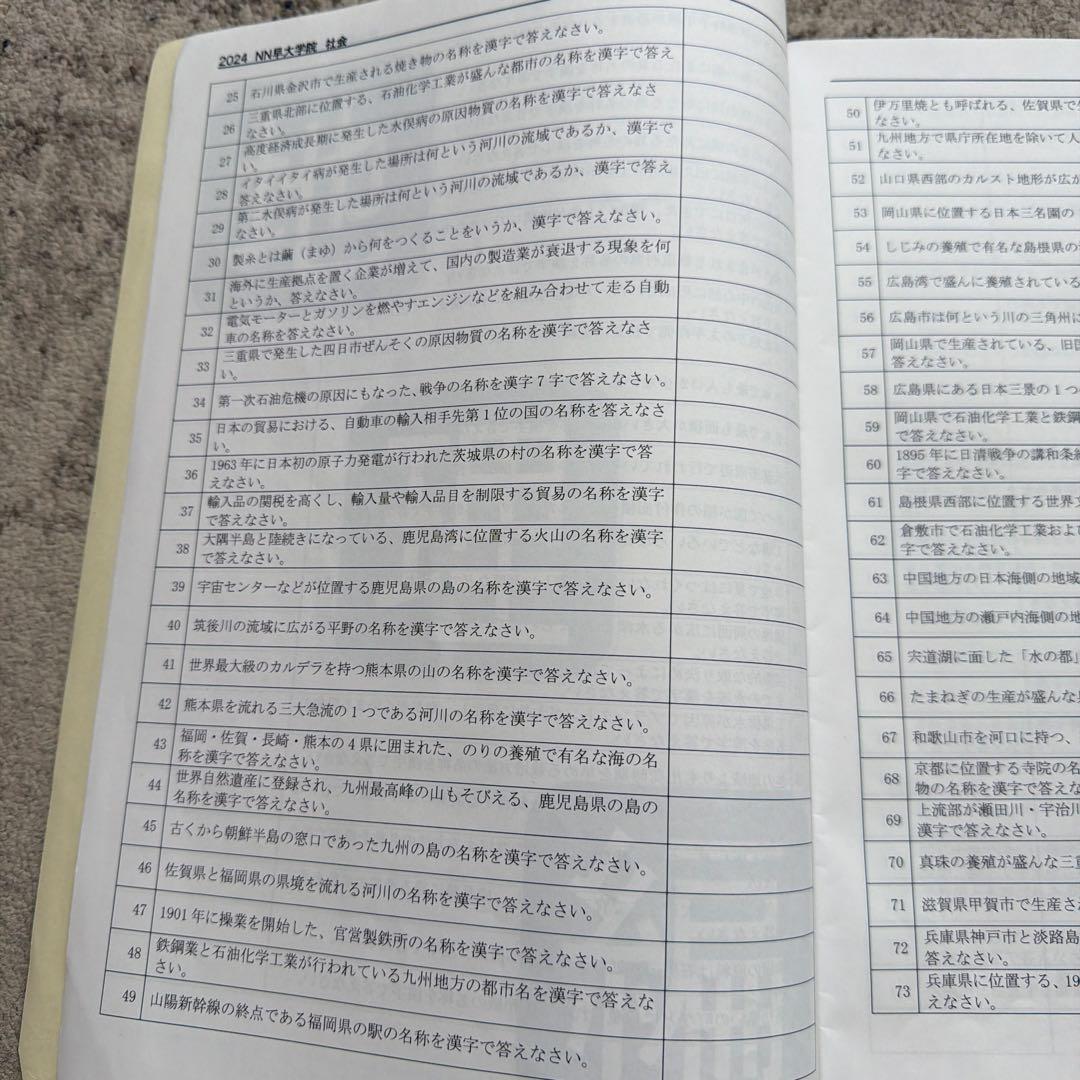 2024 NN早大学院 社会
25 石川県金沢市で生産される焼き物の名称を漢字で答えなさい。
26 三重県北部に位置する、石油化学工業が盛んな都市の名称を漢字で答え
なさい。
27 高度経済成長期に発生した水俣病の原因物質の名称を漢字で答えなさ
い。
28 イタイイタイ病が発生した場所は何という河川の流域であるか、漢字で
答えなさい。
29 第二水俣病が発生した場所は何という河川の流域であるか、漢字で答え
なさい。
30 製糸とは繭（まゆ）から何をつくることをいうか、漢字で答えなさい。
31 海外に生産拠点を置く企業が増えて、国内の製造業が衰退する現象を何
というか、答えなさい。
32 電気モーターとガソリンを燃やすエンジンなどを組み合わせて走る自動
車の名称を答えなさい。
33 三重県で発生した四日市ぜんそくの原因物質の名称を漢字で答えなさ
い。
34 第一次石油危機の原因にもなった、戦争の名称を漢字7字で答えなさい。
35 日本の貿易における、自動車の輸入相手先第1位の国の名称を答えなさ
い。
36 1963年に日本初の原子力発電が行われた茨城県の村の名称を漢字で答
えなさい。
37 輸入品の関税を高くし、輸入量や輸入品目を制限する貿易の名称を漢字
で答えなさい。
38 大隅半島と陸続きになっている、鹿児島湾に位置する火山の名称を漢字
で答えなさい。
39 宇宙センターなどが位置する鹿児島県の島の名称を漢字で答えなさい。
40 筑後川の流域に広がる平野の名称を漢字で答えなさい。
41 世界最大級のカルデラを持つ熊本県の山の名称を漢字で答えなさい。
42 熊本県を流れる三大急流の1つである河川の名称を漢字で答えなさい。
43 福岡・佐賀・長崎・熊本の4県に囲まれた、のりの養殖で有名な海の名
称を漢字で答えなさい。
44 世界自然遺産に登録され、九州最高峰の山もそびえる、鹿児島県の島の
名称を漢字で答えなさい。
45 古くから朝鮮半島の窓口であった九州の島の名称を漢字で答えなさい。
46 佐賀県と福岡県の県境を流れる河川の名称を漢字で答えなさい。
47 1901年に操業を開始した、官営製鉄所の名称を漢字で答えなさい。
48 鉄鋼業と石油化学工業が行われている九州地方の都市名を漢字で答えな
さい。
49 山陽新幹線の終点である福岡県の駅の名称を漢字で答えなさい。
50 伊万里焼とも呼ばれる、佐賀県で
なさい。
51 九州地方で県庁所在地を除いて人
なさい。
52 山口県西部のカルスト地形が広が
53 岡山県に位置する日本三名園の
54 しじみの養殖で有名な島根県の
55 広島湾で盛んに養殖されている
56 広島市は何という川の三角州に
57 岡山県で生産されている、旧国
答えなさい。
58 広島県にある日本三景の1つ
59 岡山県で石油化学工業と鉄鋼
で答えなさい。
60 1895年に日清戦争の講和条
字で答えなさい。
61 島根県西部に位置する世界
62 倉敷市で石油化学工業およ
字で答えなさい。
63 中国地方の日本海側の地域
64 中国地方の瀬戸内海側の地
65 宍道湖に面した「水の都」
66 たまねぎの生産が盛んな
67 和歌山市を河口に持つ、
68 京都に位置する寺院の名
物の名称を漢字で答えな
69 上流部が瀬田川・宇治川
漢字で答えなさい。
70 真珠の養殖が盛んな三重
71 滋賀県甲賀市で生産さ
72 兵庫県神戸市と淡路島
答えなさい。
73 兵庫県に位置する、19
えなさい。